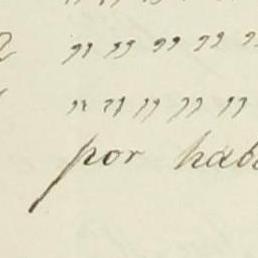 " " " " "
" " " " "
por hab